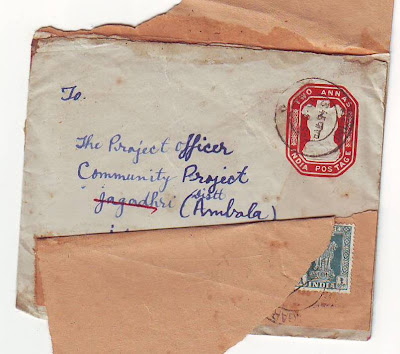 To.
TWO ANNAS
INDIA POSTAGE
The Project Officer
Community Project
Jagadhri distt (Ambala)
INDIA